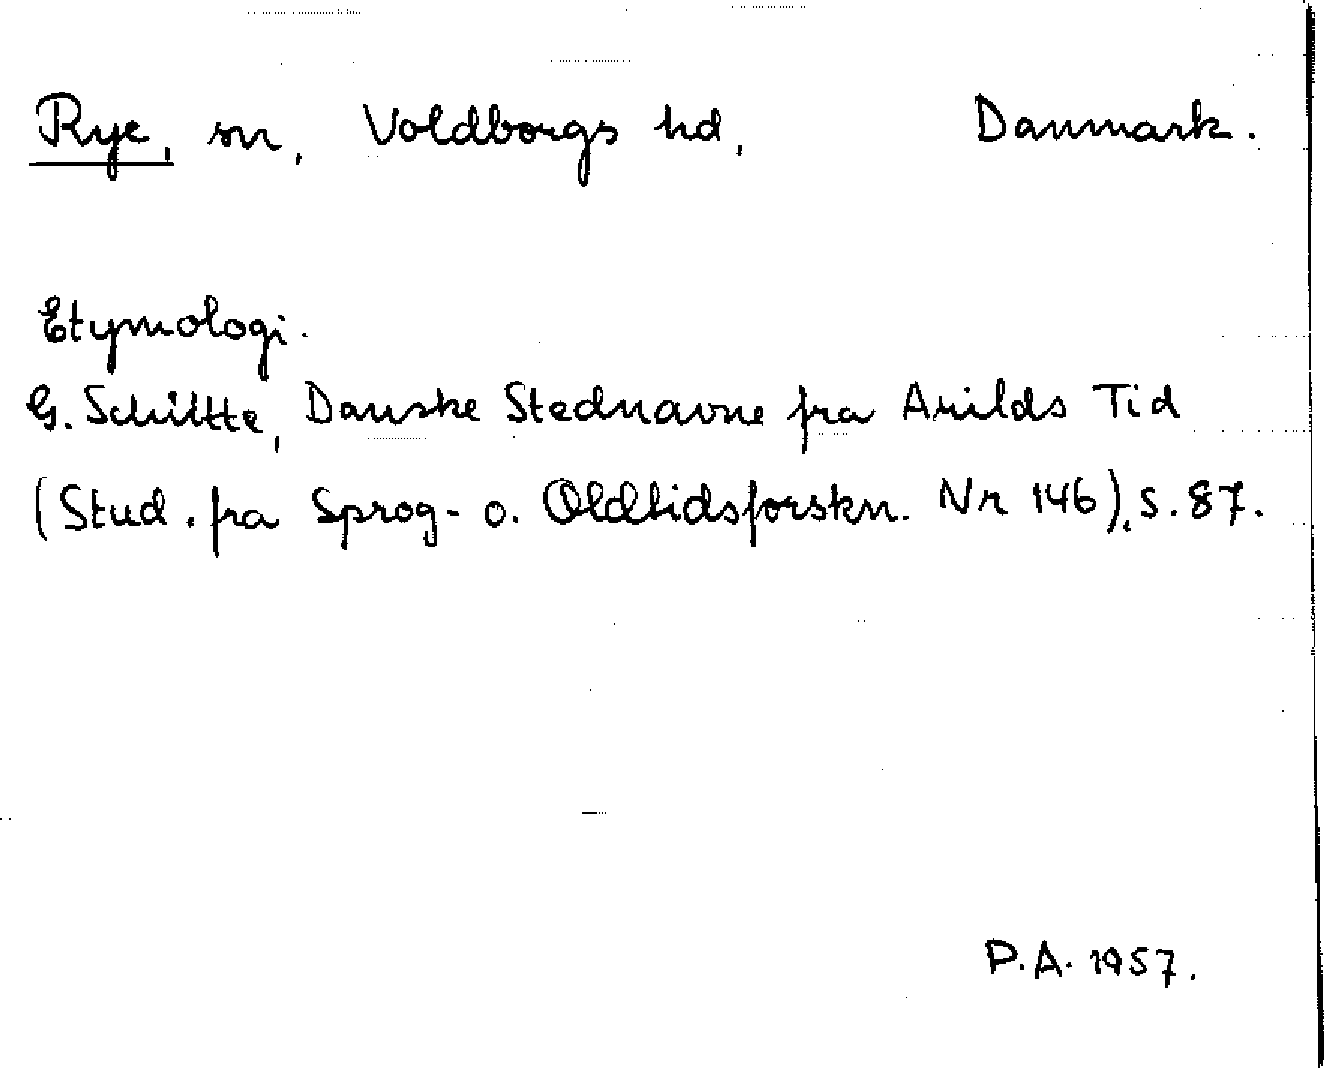 Rye, sn, Voldborgs hd, Danmark.
Etymologi.
G. Schütte, Danske Stednavne fra Arilds Tid
(Stud. fra Sprog- o. Oldtidsforskn. Nr 146), s. 87.
P.A. 1957.